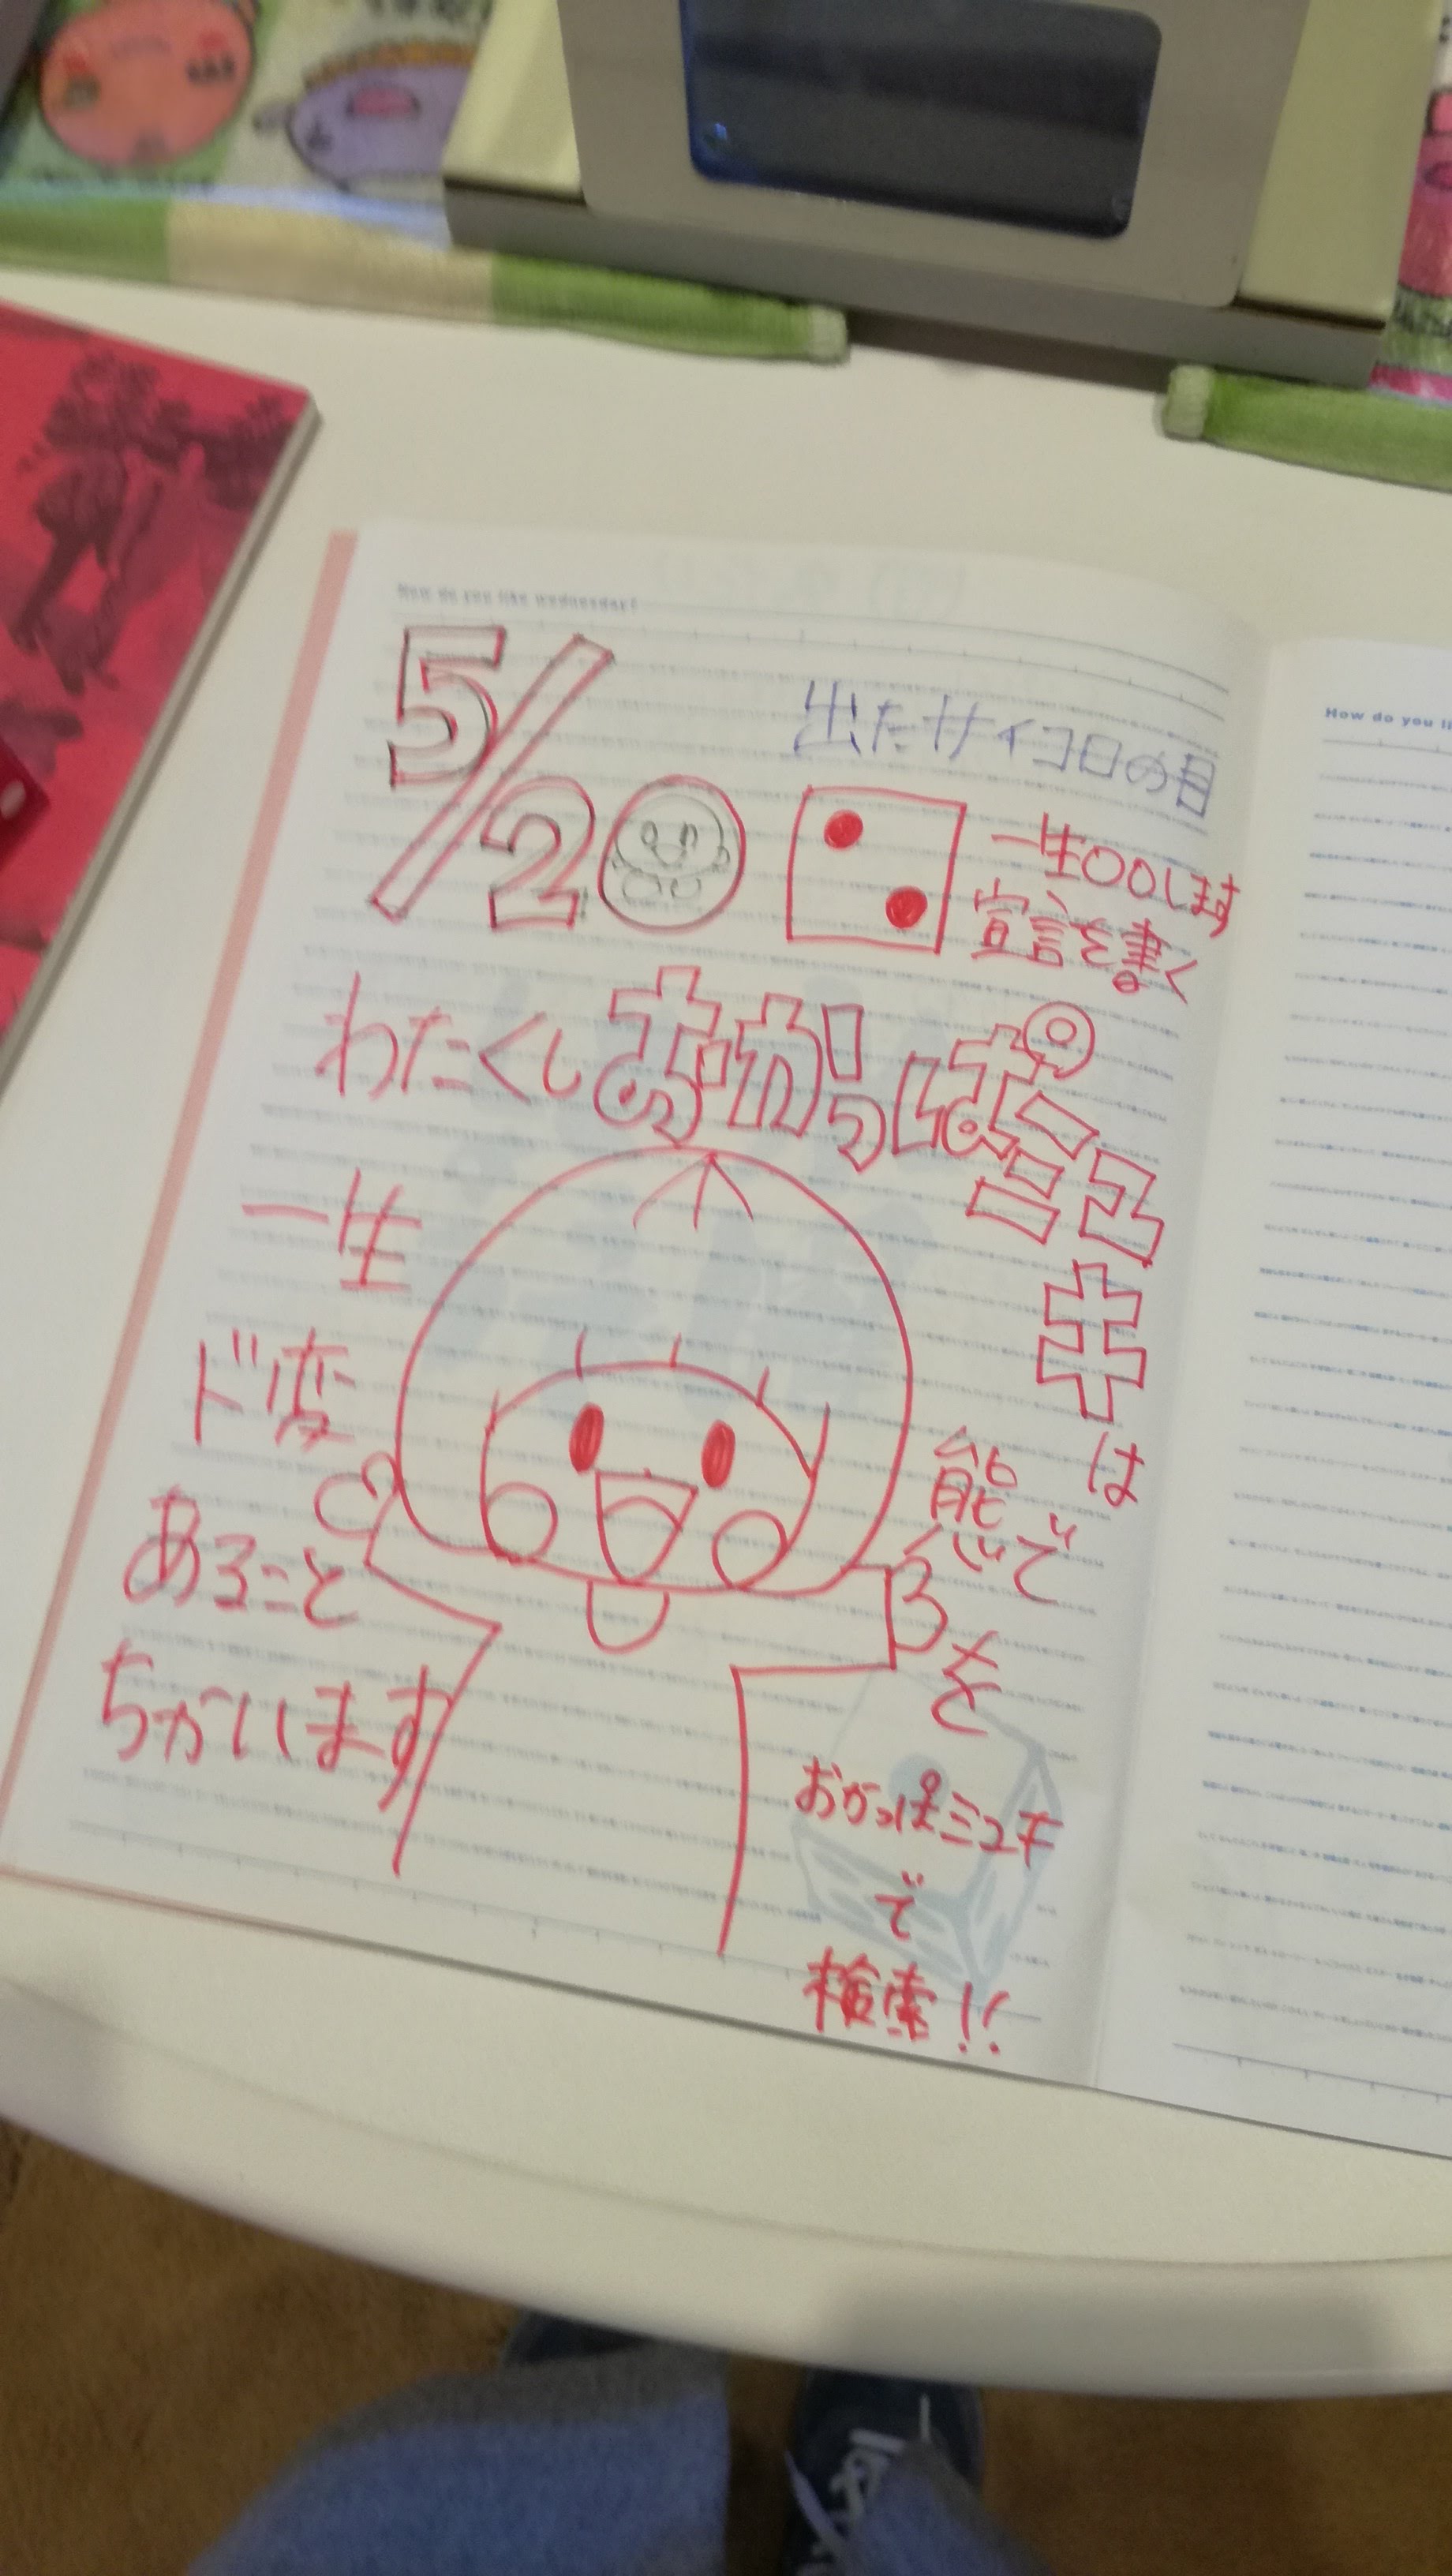 How do you like wednesday?
5/20
出たサイコロの目
一生〇〇します
宣言を書く
わたくしおかっぱミユキは
一生
ド変
態で
あることを
ちかいます
おかっぱミユキ
で
検索!!
How do you li